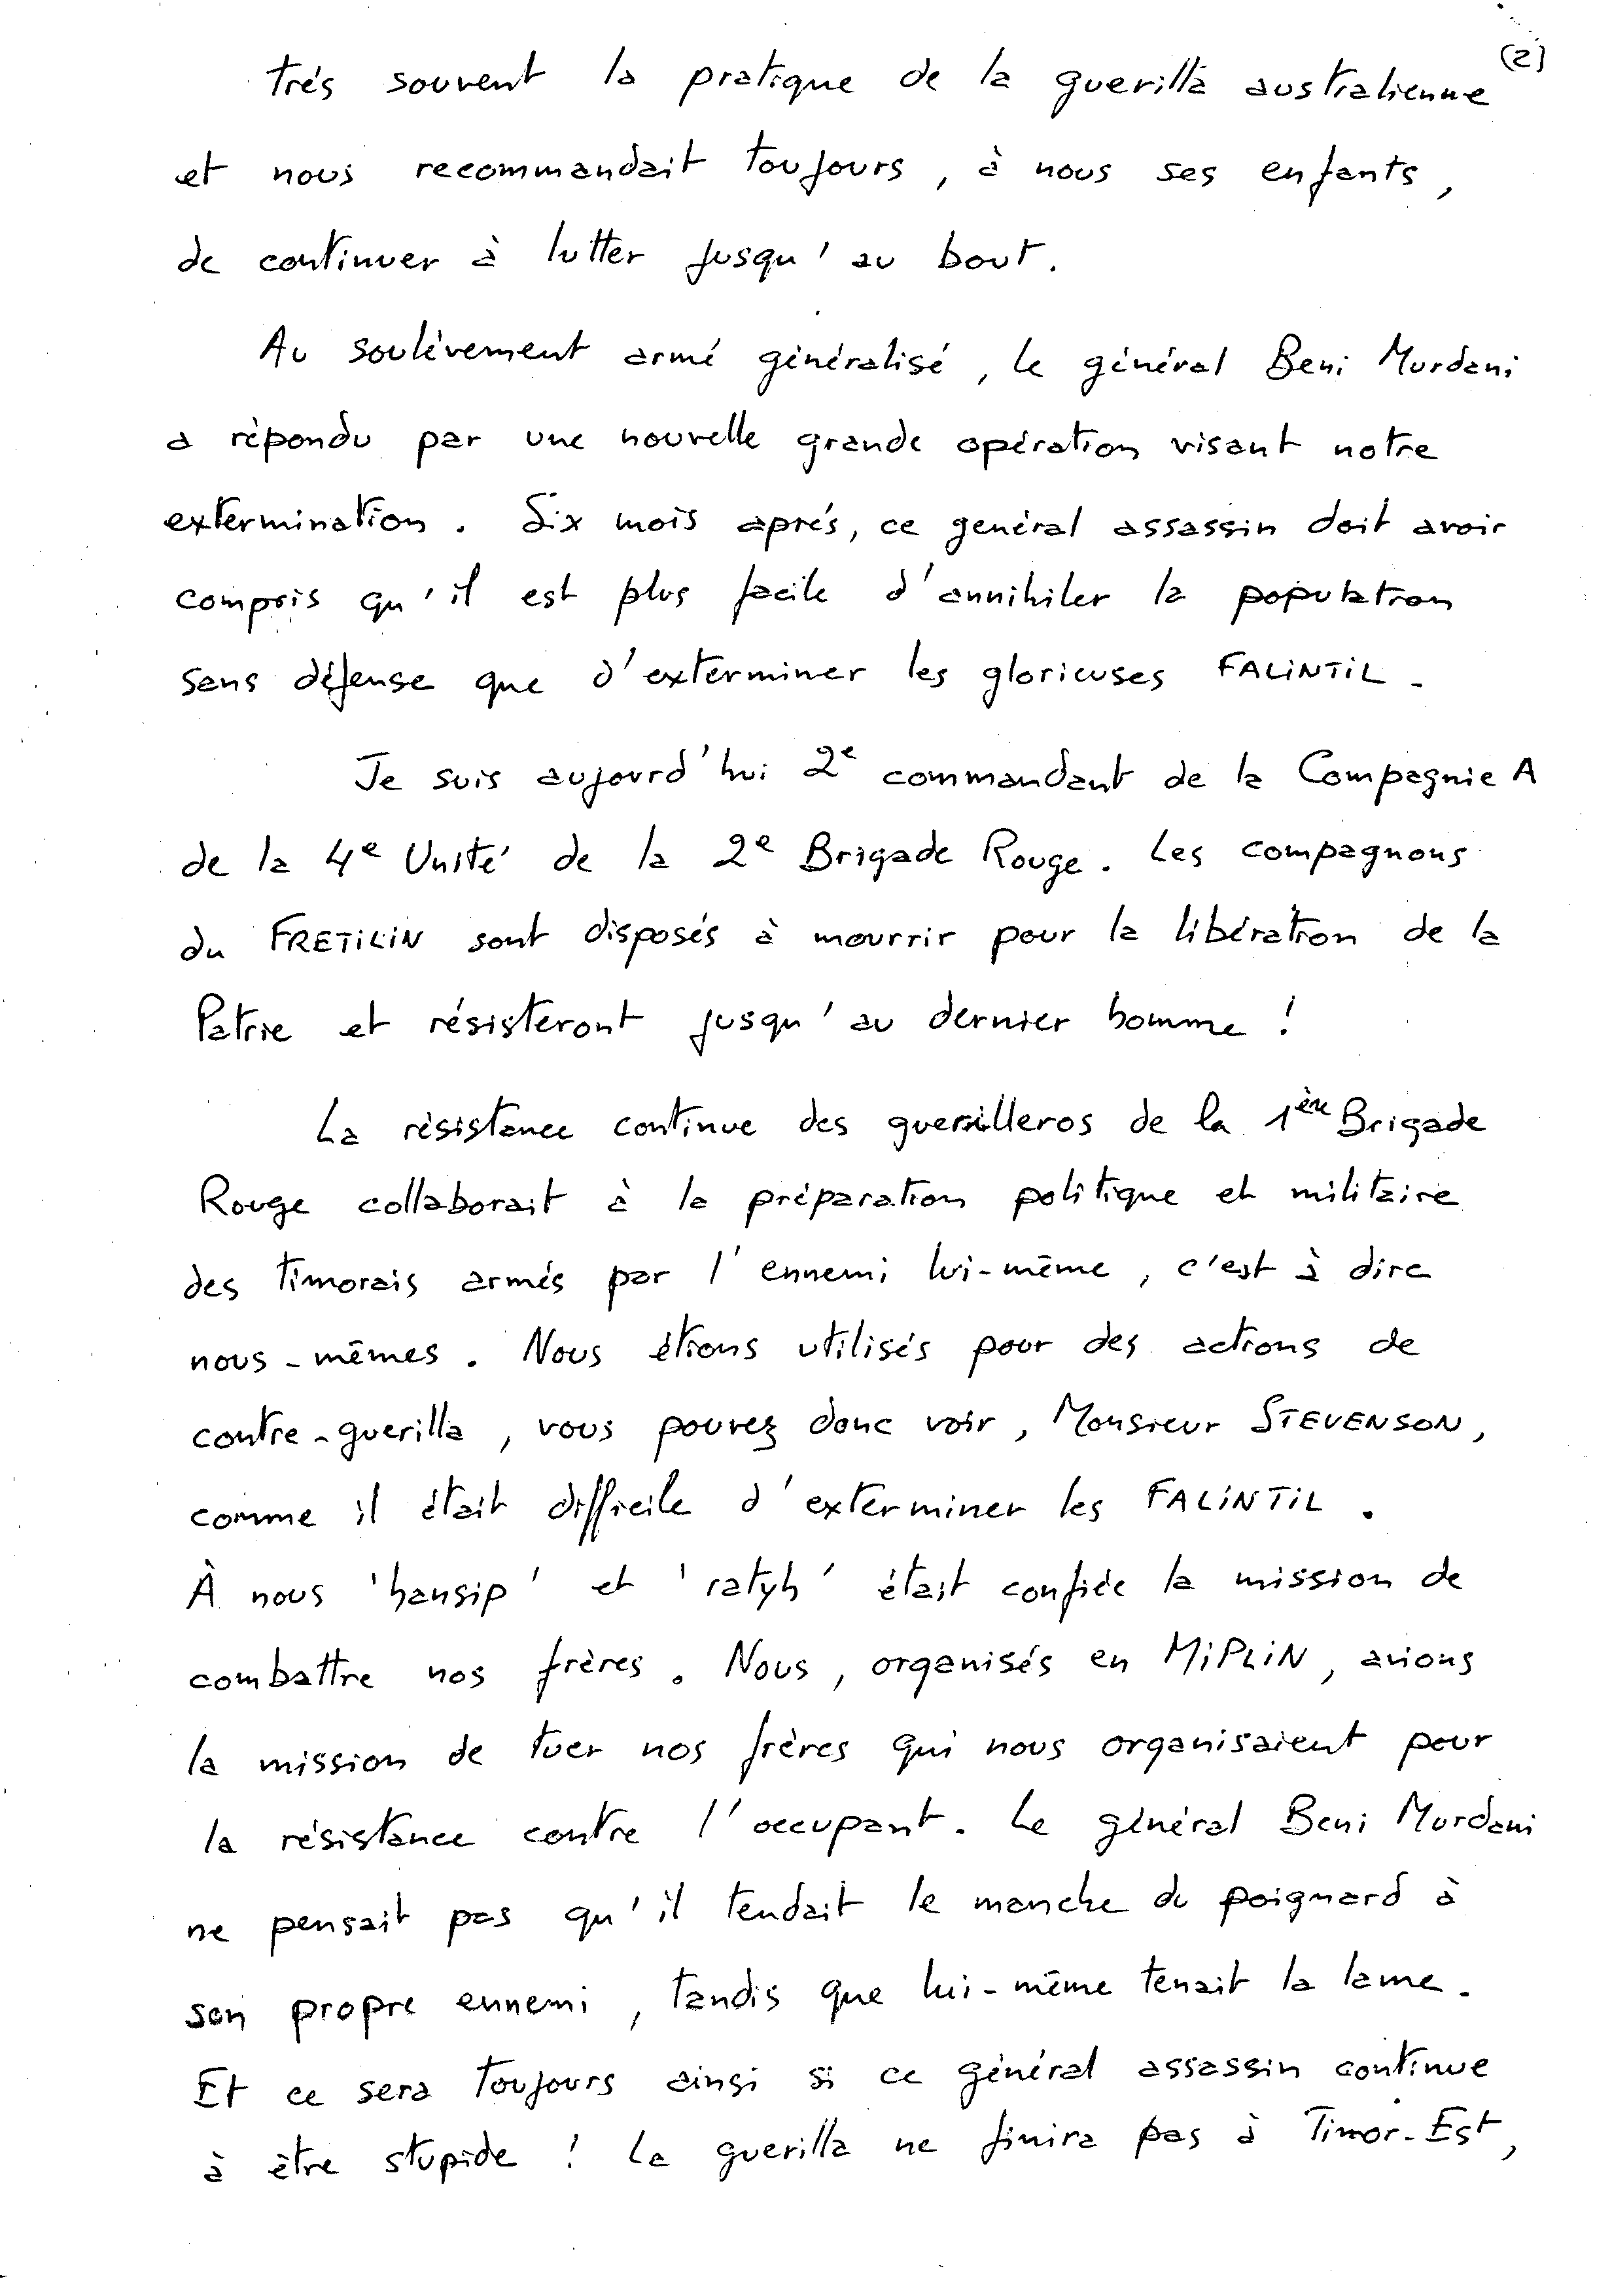 (2)
très souvent la pratique de la guerilla australienne
et nous recommandait toujours, à nous ses enfants,
de continuer à lutter jusqu'au bout.
Au soulèvement armé généralisé, le général Beni Murdani
a répondu par une nouvelle grande opération visant notre
extermination. Six mois après, ce général assassin doit avoir
compris qu'il est plus facile d'annihiler la population
sans défense que d'exterminer les glorieuses FALINTIL.
Je suis aujourd'hui 2e commandant de la Compagnie A
de la 4e Unité de la 2e Brigade Rouge. Les compagnons
du FRETILIN sont disposés à mourrir pour la libération de la
Patrie et résisteront jusqu'au dernier homme !
La résistance continue des guerilleros de la 1ère Brigade
Rouge collaborait à la préparation politique et militaire
des Timorais armés par l'ennemi lui-même, c'est à dire
nous-mêmes. Nous étions utilisés pour des actions de
contre-guerilla, vous pouvez donc voir, Monsieur STEVENSON,
comme il était difficile d'exterminer les FALINTIL.
À nous 'hansip' et 'ratyh' était confiée la mission de
combattre nos frères. Nous, organisés en MIPLIN, avions
la mission de tuer nos frères qui nous organisaient pour
la résistance contre l'occupant. Le général Beni Murdani
ne pensait pas qu'il tendait le manche du poignard à
son propre ennemi, tandis que lui-même tenait la lame.
Et ce sera toujours ainsi si ce général assassin continue
à être stupide ! La guerilla ne finira pas à Timor-Est,